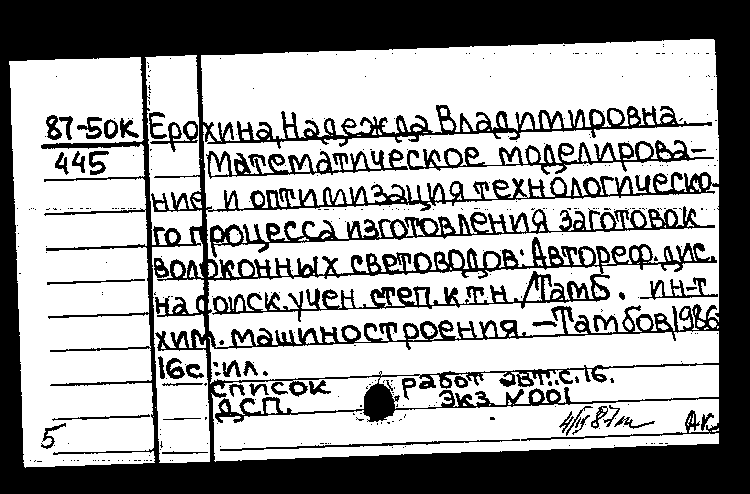 87-50к Ерохина, Надежда Владимировна.
445 Математическое моделирова-
ние и оптимизация технологическо-
го процесса изготовления заготовок
волоконных световодов: Автореф. дис.
на соиск. учен. степ. к.т.н. /Тамб. ин-т
хим. машиностроения. – Тамбов, 1986
16с.: ил.
Список работ авт.: с. 16.
ДСП. Экз. №001
5 Ак